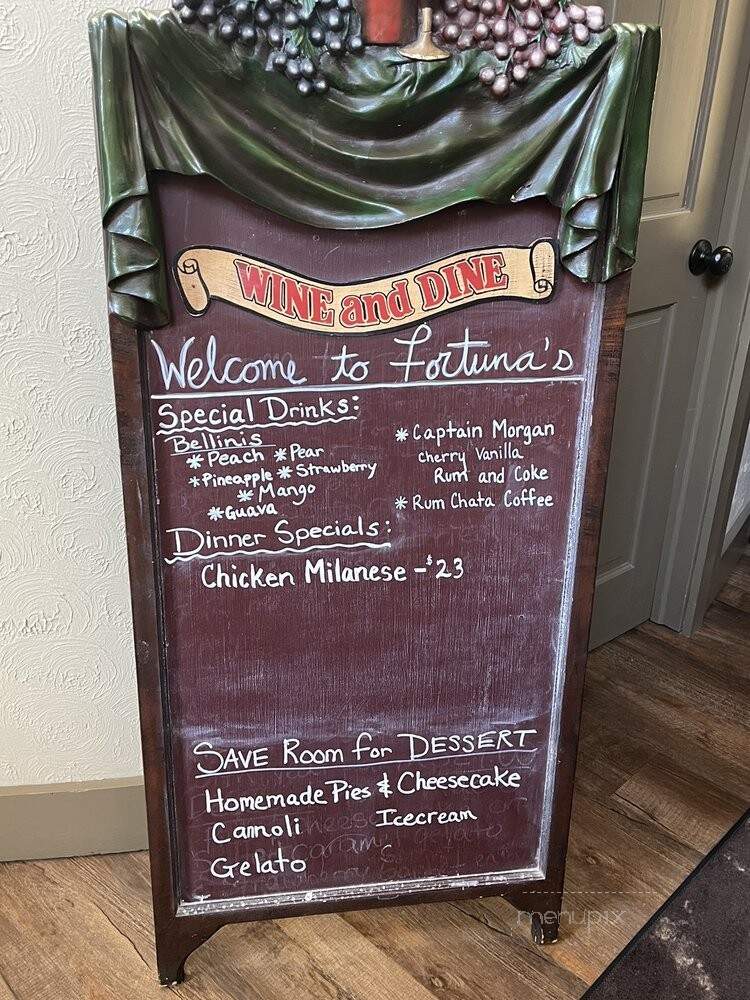 WINE and DINE
Welcome to Fortuna's
Special Drinks:
Bellinis
* Peach * Pear
* Pineapple * Strawberry
* Mango
* Guava
* Captain Morgan
cherry Vanilla
Rum and Coke
* Rum Chata Coffee
Dinner Specials:
Chicken Milanese - $23
SAVE Room for DESSERT
Homemade Pies & Cheesecake
Cannoli Icecream
Gelato
menupix